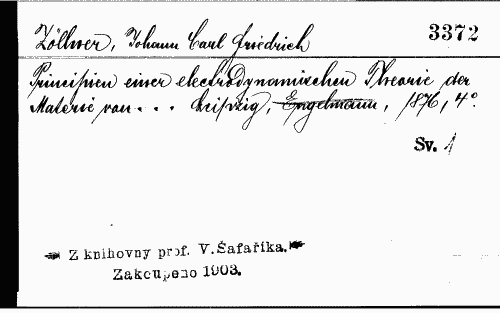 Zöllner, Johann Carl Friedrich
3372
Principien einer electrodynamischen Theorie der
Materie von . . . Leipzig, Engelmann, 1876, 4°.
Sv. 1
Z knihovny prof. V. Šafaříka.
Zakoupeno 1903.